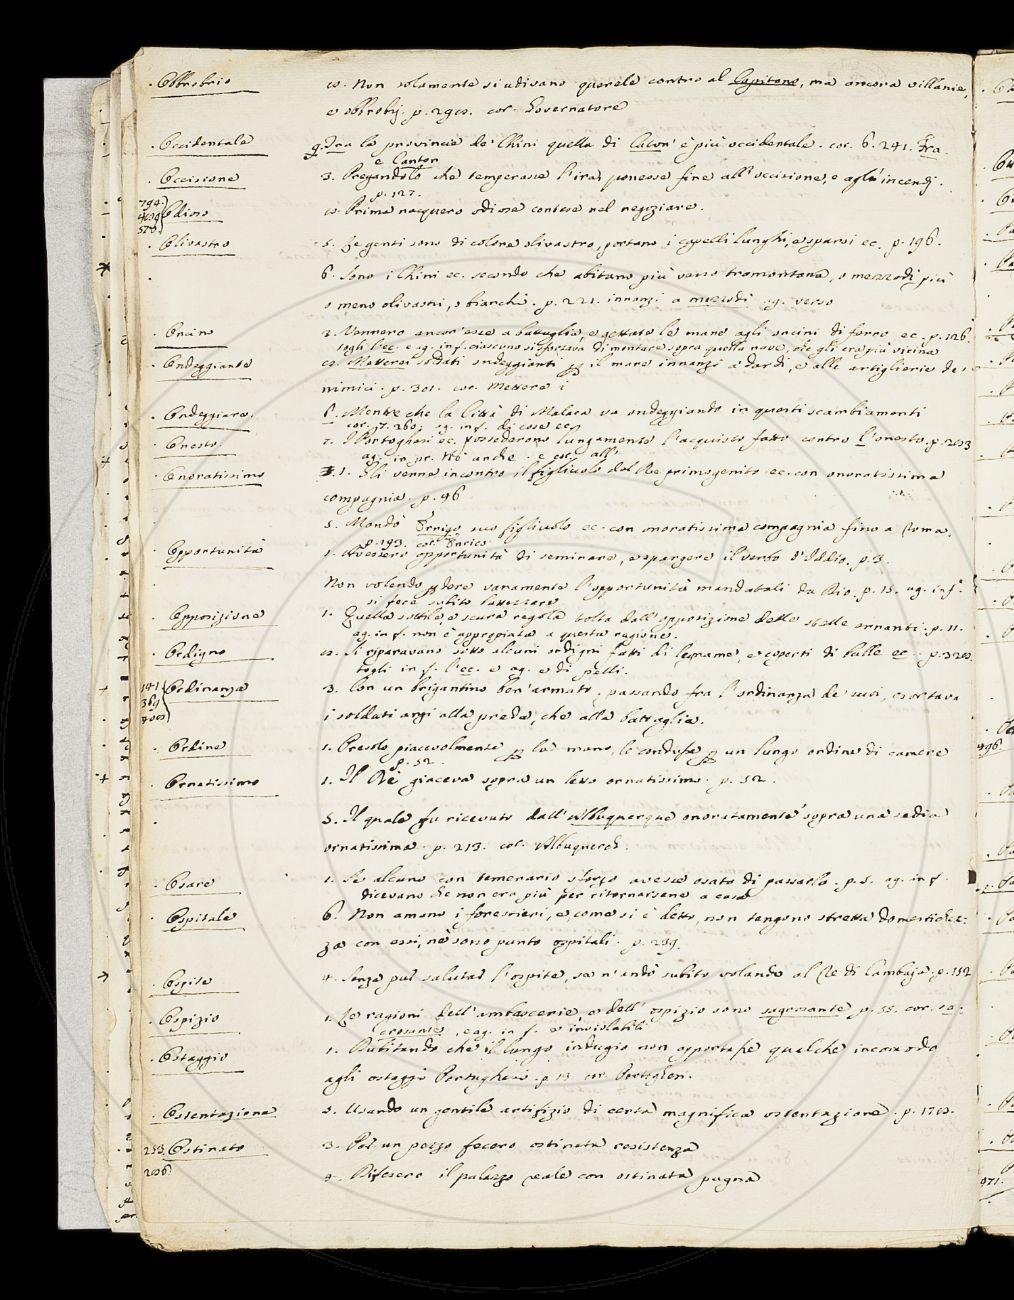 . Obbrobrio   10. Non solamente si udivano querele contro al Capitano, ma ancora villanie,
e obbrobrij. p. 290. cor. Governatore
. Occidentale   9. Tra le provincie de' Chini quella di è più occidentale. cor. 6. 241. Fra
e Canton
. Occisione   3. Pregandolo che temperasse l'ira, ponesse fine all'occisione, e agl' incendj.
p. 127.
794.
. Odioso   10. Prima nacquero odiose contese nel negoziare.
. Olivastro   5. Le genti sono di colore olivastro, portano i capelli lunghi, e sparsi ec. p. 196.
6. Sono i Chini ec. secondo che abitano più verso tramontana, o mezzodì più
o meno olivastri, o bianchi. p. 221. innanzi a mezzodì ag. verso
. Oncino   2. Vennero ancor'esse a battaglia, e gettate le mane agli oncini di ferro ec. p. 126.
togli l'ec. e ag. inf. ciascuno si sforzava di montare sopra quella nave, che gli era più vicina
. Ondeggiante   10. Mettersi soldati ondeggianti p il mare innanzi a' dardi, e alle artiglierie de'
nimici. p. 301. cor. Mettere i
. Ondeggiare.   6. Mentre che la Città di Malaca va ondeggiando in questi scambiamenti
cor. 7. 260; ag. inf. di cose ec.
. Onesto   7. I Portoghesi ec. possederono lungamente l'acquisto fatto contro l'onesto. p. 263
ag. in pr. Nè anche. e cor. all'
. Onoratissimo   1. Gli venne incontro il figliuolo del Re primogenito ec. con onoratissima
compagnia. p. 96
5. Mandò Errigo suo figliuolo ec. con onoratissima compagnia fino a Roma.
p. 193. cor. Enrico
. Opportunità   1. Avessero opportunità di seminare, e spargere il verbo d'Iddio. p. 3.
Non volendo pdere vanamente l'opportunità mandatali da Dio. p. 15. ag. inf.
si fece subito battezzare
. Opposizione   1. Quella sottile, e scura regola tolta dall'opposizione delle stelle erranti. p. 11.
ag. inf. non è appropiata a questa ragione.
. Ordigno   10. Si riparavano sotto alcuni ordigni fatti di legname, e coperti di balle ec. p. 320.
togli in f. l'ec. e ag. e di pelli.
141
369
. Ordinanza   3. Con un brigantino ben'armato, passando fra l'ordinanza de' suoi, esortava
i soldati anzi alla preda, che alla battaglia.
. Ordine   1. Presolo piacevolmente p la mano, lo condusse p un lungo ordine di camere
p. 52.
. Ornatissimo   1. Il Rè giaceva sopra un letto ornatissimo. p. 52.
5. Il quale fu ricevuto dall'Albuquerque onoratamente sopra una sedia
ornatissima. p. 213. cor.
. Osare   1. Se alcuno con temerario sforzo avesse osato di passarlo. p. 5. ag. in f.
dicevano che non era più per ritornarsene a casa
. Ospitale   6. Non amano i forestieri, e come si è detto, non tengono stretta domestichez=
za con essi, nè sono punto ospitali. p. 239.
. Ospite   4. Senza pur salutar l'ospite, se n'andò subito volando al Re di Cambaja. p. 152
. Ospizio   1. Le ragioni dell'ambascerie, e dell'ospizio sono sagrosante p. 55. cor. sa=
crosante, e ag. in f. e inviolabili
. Ostaggio   1. Dubitando che il lungo indugio non apportasse qualche incomodo
agli ostaggi Portughesi. p. 13. cor. Portoghesi.
. Ostentazione   5. Usando un gentile artifizio di certa magnifica ostentazione. p. 170.
233. . Ostinato   3. Per un pezzo fecero ostinata resistenza
206.   9. Difesero il palazzo reale con ostinata pugna